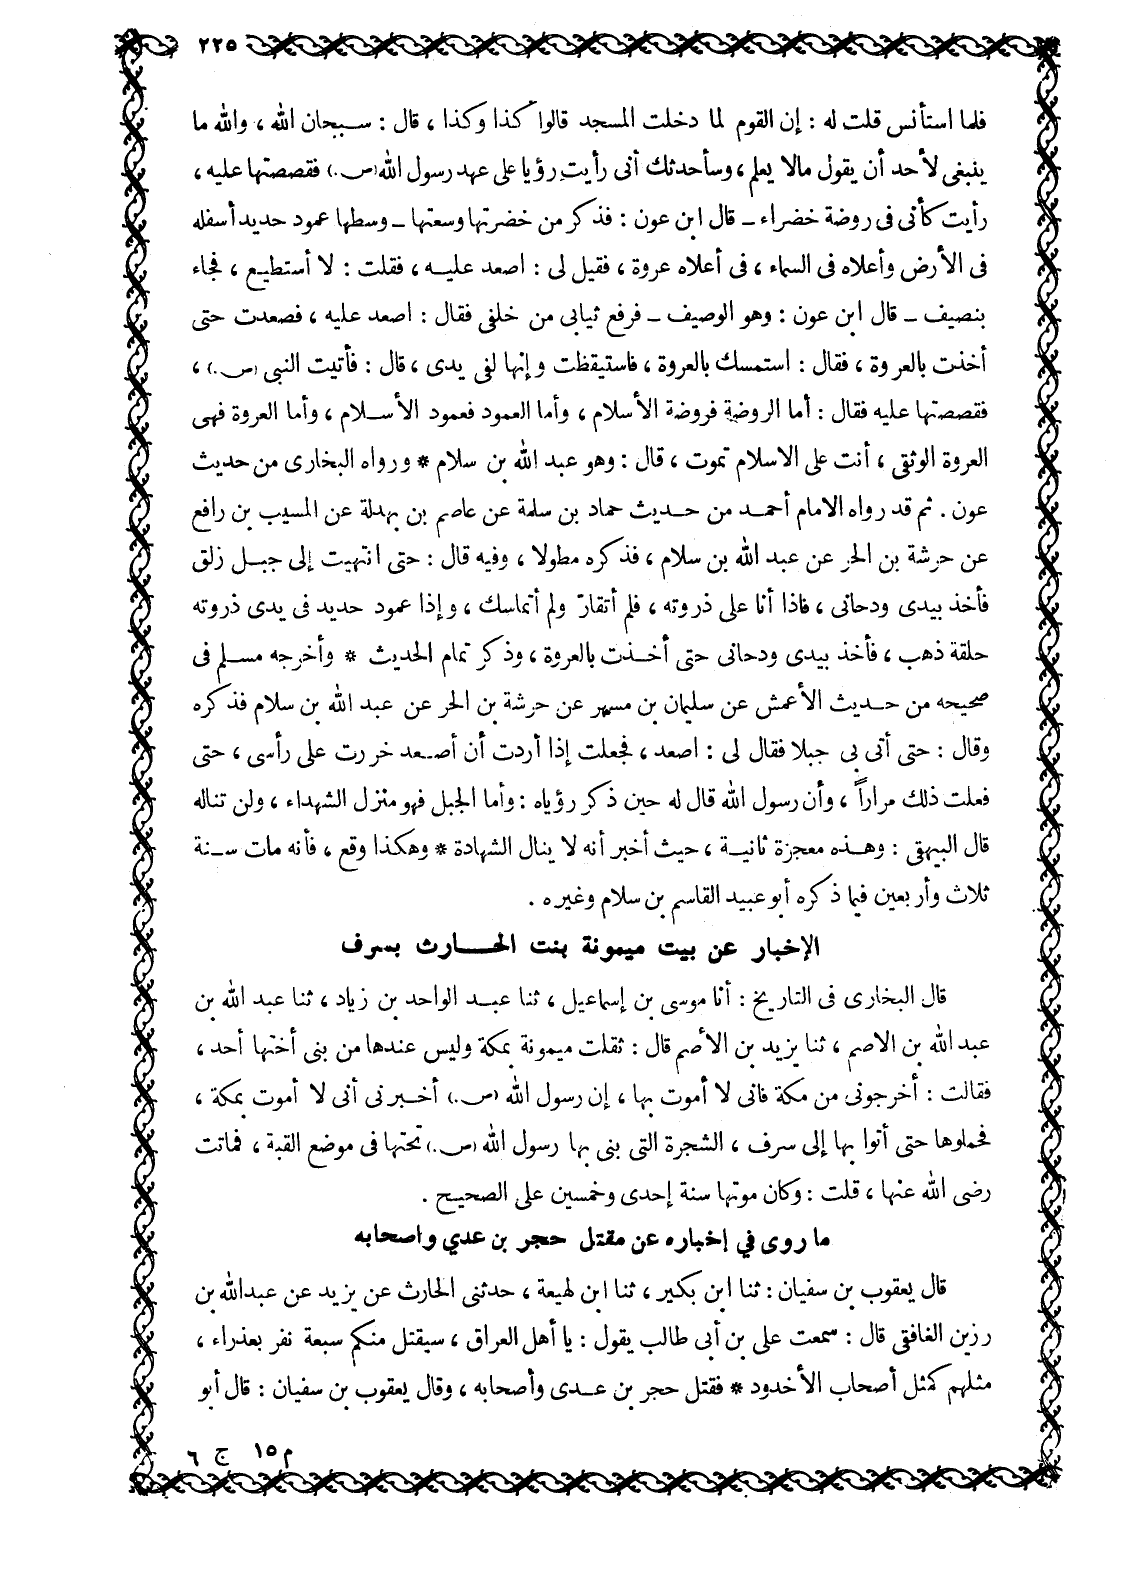 ٢٢٥
فلما استأنس قلت له : إن القوم لما دخلت المسجد قالوا كذا وكذا ، قال : سبحان الله ، والله ما
ينبغى لأحد أن يقول مالا يعلم ، وسأحدثك أنى رأيت رؤيا على عهد رسول الله (ص.) فقصصتها عليه ،
رأيت كأنى فى روضة خضراء ــ قال ابن عون : فذكر من خضرتها وسعتها ــ وسطها عمود حديد أسفله
فى الأرض وأعلاه فى السماء ، فى أعلاه عروة ، فقيل لى : اصعد عليه ، فقلت : لا أستطيع ، فجاء
بنصيف ــ قال ابن عون : وهو الوصيف ــ فرفع ثيابى من خلفى فقال : اصعد عليه ، فصعدت حتى
أخذت بالعروة ، فقال : استمسك بالعروة ، فاستيقظت وإنها لفى يدى ، قال : فأتيت النبى (ص.) ،
فقصصتها عليه فقال : أما الروضة فروضة الأسلام ، وأما العمود فعمود الأسلام ، وأما العروة فهى
العروة الوثقى ، أنت على الاسلام تموت ، قال : وهو عبد الله بن سلام * ورواه البخارى من حديث
عون . ثم قد رواه الامام أحمد من حديث حماد بن سلمة عن عاصم بن بهدلة عن المسيب بن رافع
عن حرشة بن الحر عن عبد الله بن سلام ، فذكره مطولا ، وفيه قال : حتى انتهيت إلى جبل زلق
فأخذ بيدى ودحانى ، فاذا أنا على ذروته ، فلم أتقارّ ولم أتماسك ، وإذا عمود حديد فى يدى ذروته
حلقة ذهب ، فأخذ بيدى ودحانى حتى أخذت بالعروة ، وذكر تمام الحديث * وأخرجه مسلم فى
صحيحه من حديث الأعمش عن سليمان بن مسهر عن حرشة بن الحر عن عبد الله بن سلام فذكره
وقال : حتى أتى بى جبلا فقال لى : اصعد ، فجعلت إذا أردت أن أصعد خررت على رأسى ، حتى
فعلت ذلك مراراً ، وأن رسول الله قال له حين ذكر رؤياه : وأما الجبل فهو منزل الشهداء ، ولن تناله
قال البيهقى : وهذه معجزة ثانية ، حيث أخبر أنه لا ينال الشهادة * وهكذا وقع ، فأنه مات سنة
ثلاث وأربعين فيما ذكره أبو عبيد القاسم بن سلام وغيره .
الإخبار عن بيت ميمونة بنت الحارث بسرف
قال البخارى فى التاريخ : أنا موسى بن إسماعيل ، ثنا عبد الواحد بن زياد ، ثنا عبد الله بن
عبد الله بن الاصم ، ثنا يزيد بن الأصم قال : ثقلت ميمونة بمكة وليس عندها من بنى أختها أحد ،
فقالت : أخرجونى من مكة فانى لا أموت بها ، إن رسول الله (ص.) أخبرنى أنى لا أموت بمكة ،
فحملوها حتى أتوا بها إلى سرف ، الشجرة التى بنى بها رسول الله (ص.) تحتها فى موضع القبة ، فماتت
رضى الله عنها ، قلت : وكان موتها سنة إحدى وخمسين على الصحيح .
ما روى في إخباره عن مقتل حجر بن عدي واصحابه
قال يعقوب بن سفيان : ثنا ابن بكير ، ثنا ابن لهيعة ، حدثنى الحارث عن يزيد عن عبدالله بن
رزين الغافقى قال : سمعت على بن أبى طالب يقول : يا أهل العراق ، سيقتل منكم سبعة نفر بعذراء ،
مثلهم كمثل أصحاب الأخدود * فقتل حجر بن عدى وأصحابه ، وقال يعقوب بن سفيان : قال أبو
م ١٥ ج ٦